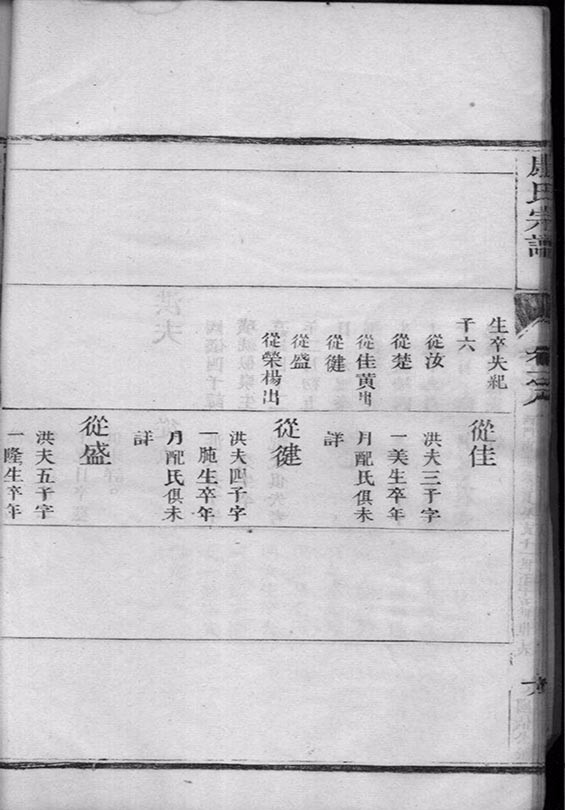 氏宗譜
生卒失紀
子六
從汝
從楚
從佳黃出
從健
從盛
從榮楊出
從佳
洪夫三子字
一美生卒年
月配氏俱未
詳
從健
洪夫四子字
一胣生卒年
月配氏俱未
詳
從盛
洪夫五子字
一隆生卒年